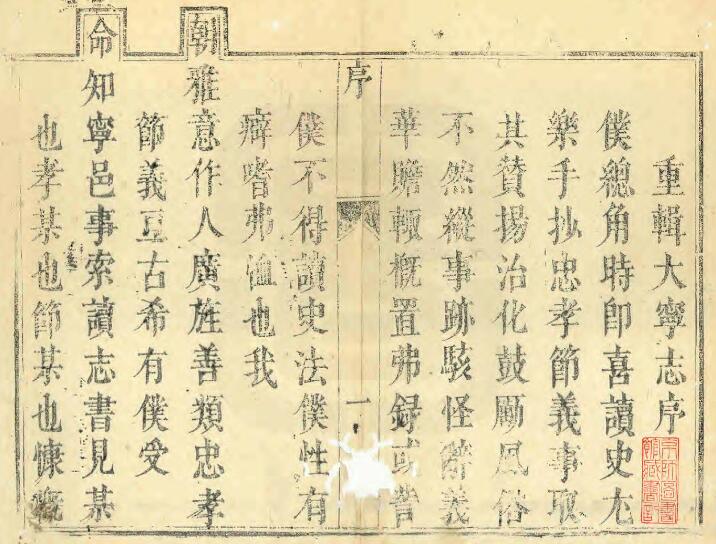 重輯大寧志序
僕總角時即喜讀史尤
樂手抄忠孝節義事取
其賛揚治化鼓勵風俗
不然縱事跡駭怪辭義
華贍輒概置弗録或訾
序
一
僕不得讀史法僕性有
癖嗜弗恤也我
朝雅意作人廣旌善類忠孝
節義亘古希有僕受
命知寧邑事索讀志書見某
也孝某也節某也慷慨